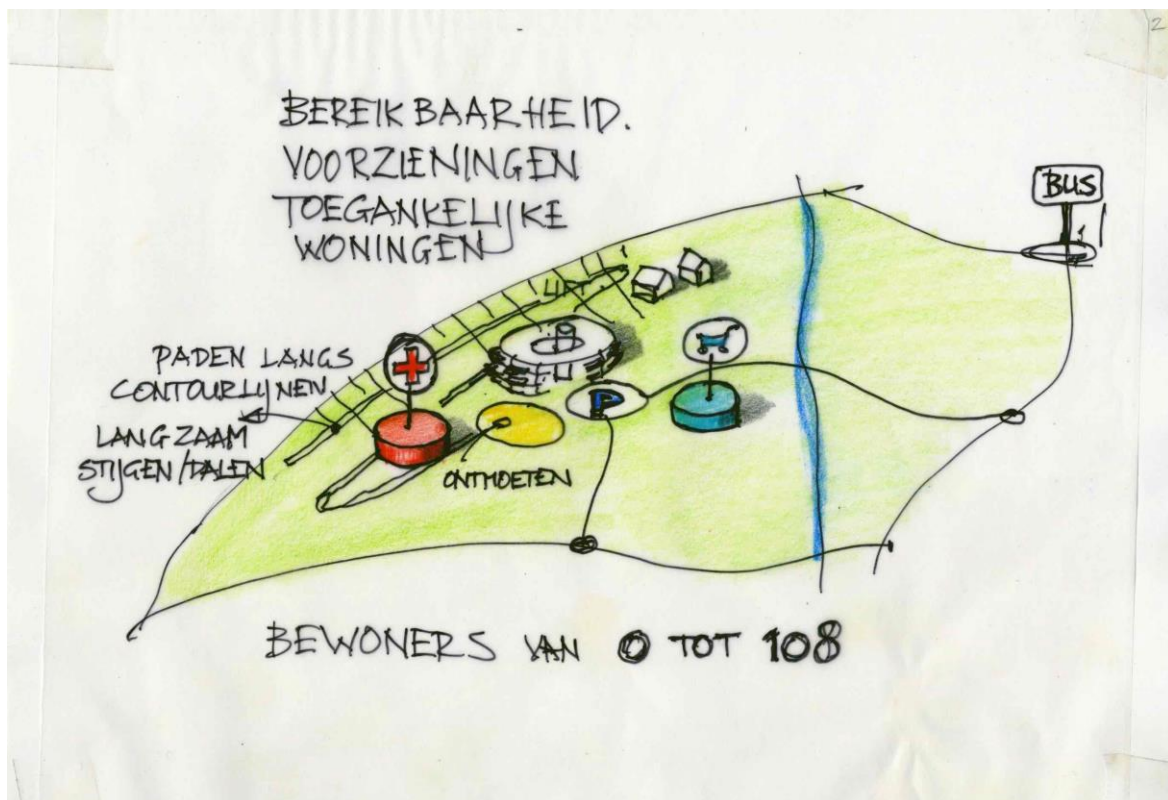 2
BEREIKBAARHEID.
VOORZIENINGEN
TOEGANKELIJKE
WONINGEN
BUS
LIFT
PADEN LANGS
CONTOURLIJNEN
LANGZAAM
STIJGEN/DALEN
P
ONTMOETEN
BEWONERS VAN 0 TOT 108